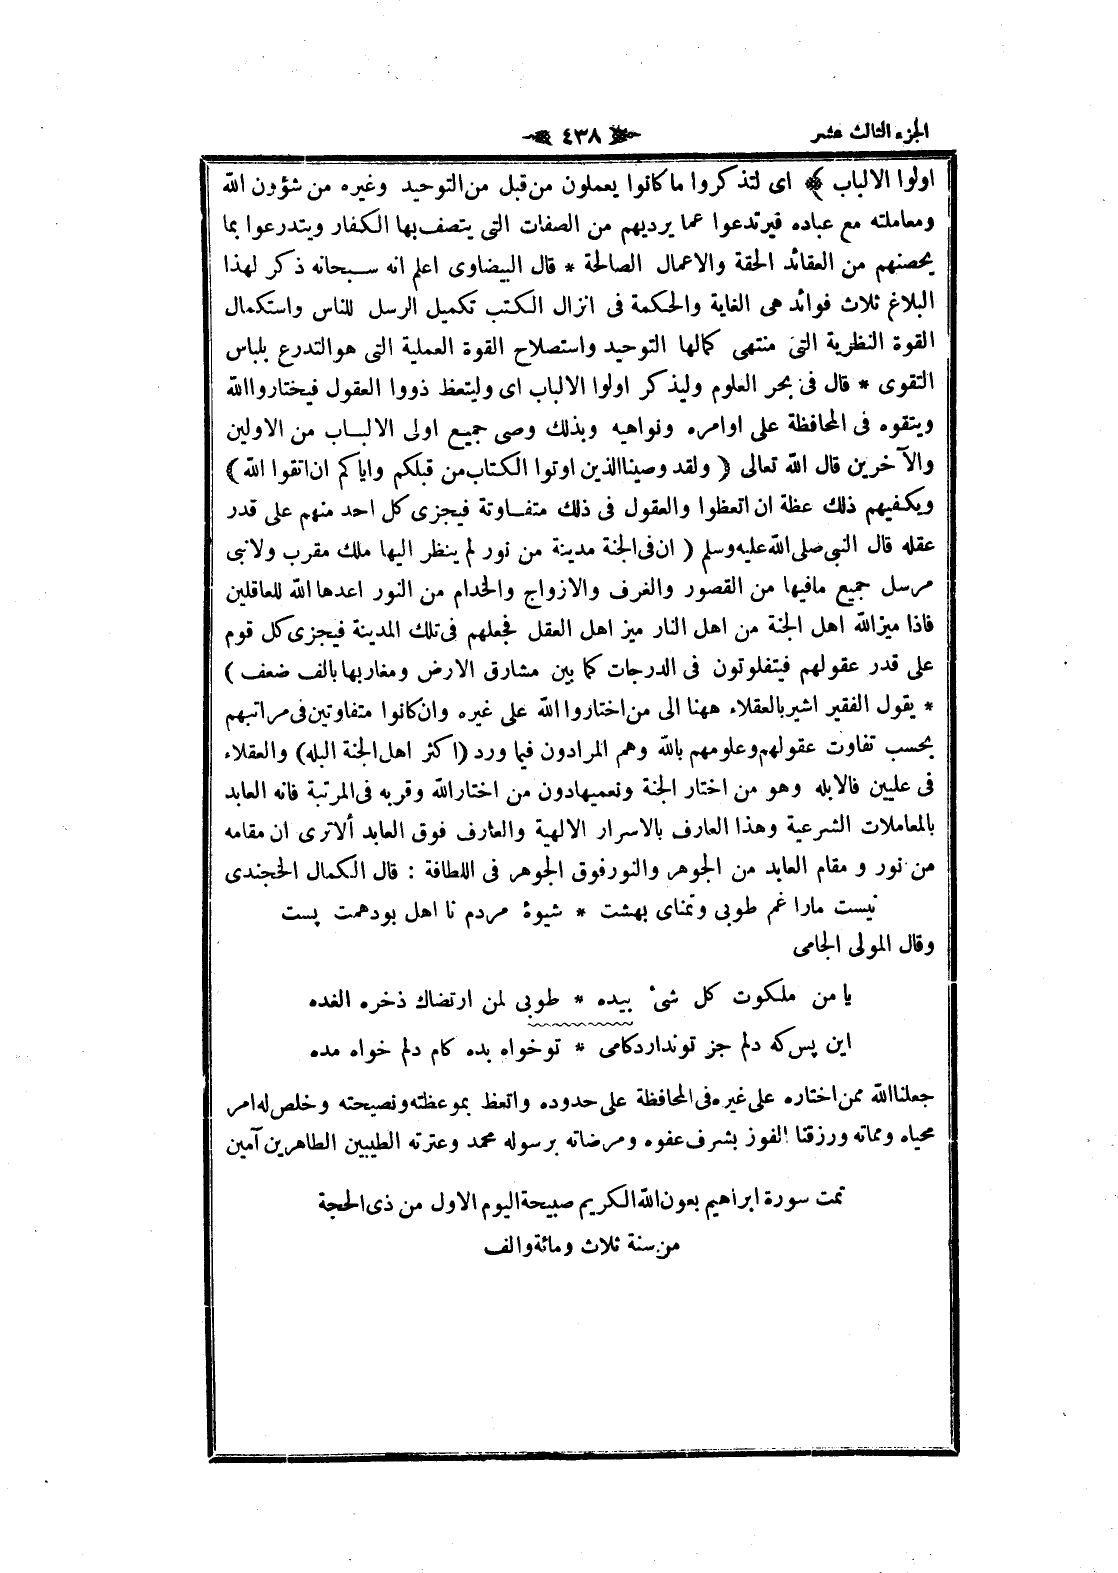 الجزء الثالث عشر
٤٣٨
اولوا الالباب ﴾ اى لتذكروا ما كانوا يعملون من قبل من التوحيد وغيره من شؤون الله
ومعاملته مع عباده فيرتدعوا عما يرديهم من الصفات التى يتصف بها الكفار ويتدرعوا بما
يحصنهم من العقائد الحقة والاعمال الصالحة * قال البيضاوى اعلم انه سبحانه ذكر لهذا
البلاغ ثلاث فوائد هى الغاية والحكمة فى انزال الكتب تكميل الرسل للناس واستكمال
القوة النظرية التى منتهى كمالها التوحيد واستصلاح القوة العملية التى هو التدرع بلباس
التقوى * قال فى بحر العلوم وليذكر اولوا الالباب اى وليتعظ ذووا العقول فيختاروا الله
ويتقوه فى المحافظة على اوامره ونواهيه وبذلك وصى جميع اولى الالباب من الاولين
والآخرين قال الله تعالى ( ولقد وصينا الذين اوتوا الكتاب من قبلكم واياكم ان اتقوا الله )
ويكفيهم ذلك عظة ان اتعظوا والعقول فى ذلك متفاوتة فيجزى كل احد منهم على قدر
عقله قال النبى صلى الله عليه وسلم ( ان فى الجنة مدينة من نور لم ينظر اليها ملك مقرب ولا نبى
مرسل جميع مافيها من القصور والغرف والازواج والخدام من النور اعدها الله للعاقلين
فاذا ميز الله اهل الجنة من اهل النار ميز اهل العقل فجعلهم فى تلك المدينة فيجزى كل قوم
على قدر عقولهم فيتفلوتون فى الدرجات كما بين مشارق الارض ومغاربها بالف ضعف )
* يقول الفقير اشير بالعقلاء ههنا الى من اختاروا الله على غيره وان كانوا متفاوتين فى مراتبهم
بحسب تفاوت عقولهم وعلومهم بالله وهم المرادون فيما ورد (اكثر اهل الجنة البله) والعقلاء
فى عليين فالابله وهو من اختار الجنة ونعميهادون من اختار الله وقربه فى المرتبة فانه العابد
بالمعاملات الشرعية وهذا العارف بالاسرار الالهية والعارف فوق العابد ألا ترى ان مقامه
من نور و مقام العابد من الجوهر والنور فوق الجوهر فى اللطافة : قال الكمال الخجندى
نيست مارا غم طوبى وتمناى بهشت * شيوهٔ مردم نا اهل بود همت پست
وقال المولى الجامى
يا من ملكوت كل شئ بيده * طوبى لمن ارتضاك ذخره الغده
اين پس كه دلم جز توندارد كامى * تو خواه بده كام دلم خواه مده
جعلنا الله ممن اختاره على غيره فى المحافظة على حدوده واتعظ بموعظته ونصيحته وخلص له امر
محياه ومماته ورزقنا الفوز بشرف عفوه ومرضاته برسوله محمد وعترته الطيبين الطاهرين آمين
تمت سورة ابراهيم بعون الله الكريم صبيحة اليوم الاول من ذى الحجة
من سنة ثلاث ومائة والف